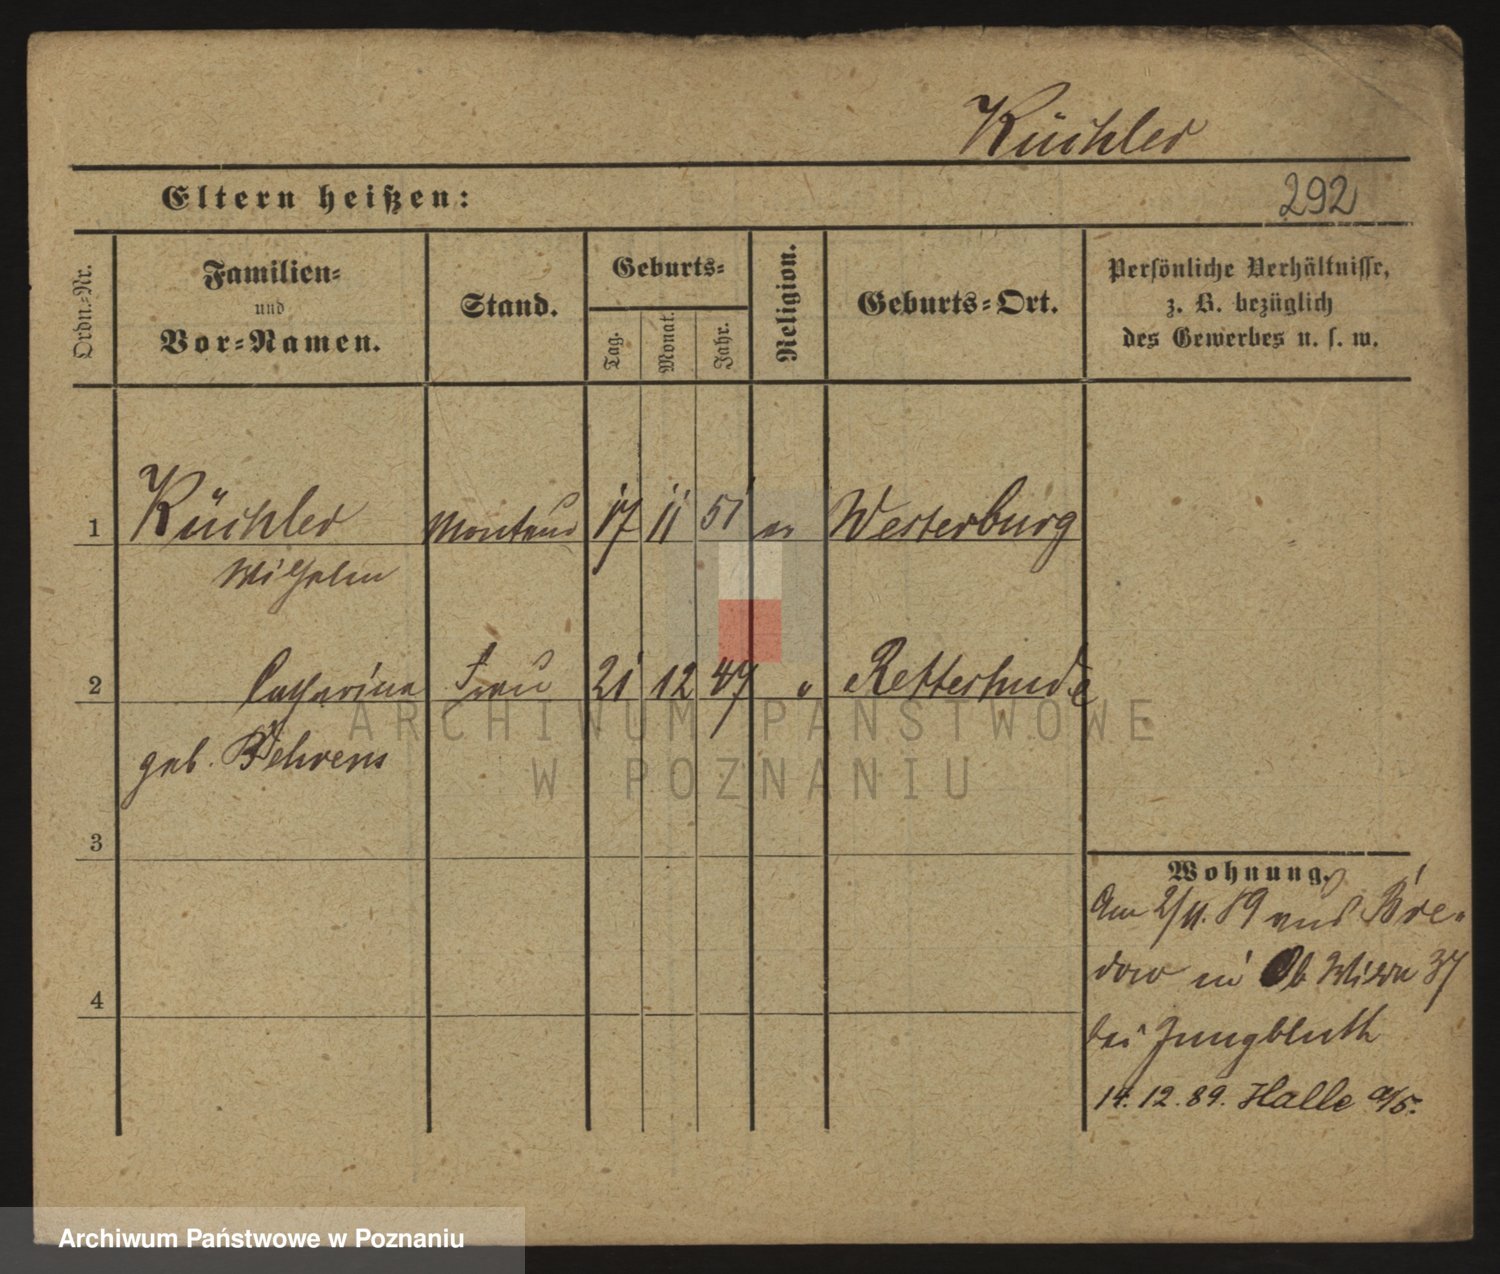 Küchler
Eltern heißen:
292
Ordn.-Nr.
Familien-
und
Vor-Namen.
Stand.
Geburts-
Tag.
Monat.
Jahr.
Religion.
Geburts-Ort.
Persönliche Verhältnisse,
z. B. bezüglich
des Gewerbes u. s. w.
1 Küchler Monteur 17 11 51 ev Westerburg
Wilhelm
2 Catharina Frau 21 12 47 " Retterhude
geb. Behrens
3
4
Wohnung.
Am 2/11. 89 aus Bre-
dow in Ob Wilda 37
bei Jungbluth
14. 12. 89. Halle a/S.
ARCHIWUM PAŃSTWOWE
W POZNANIU
Archiwum Państwowe w Poznaniu